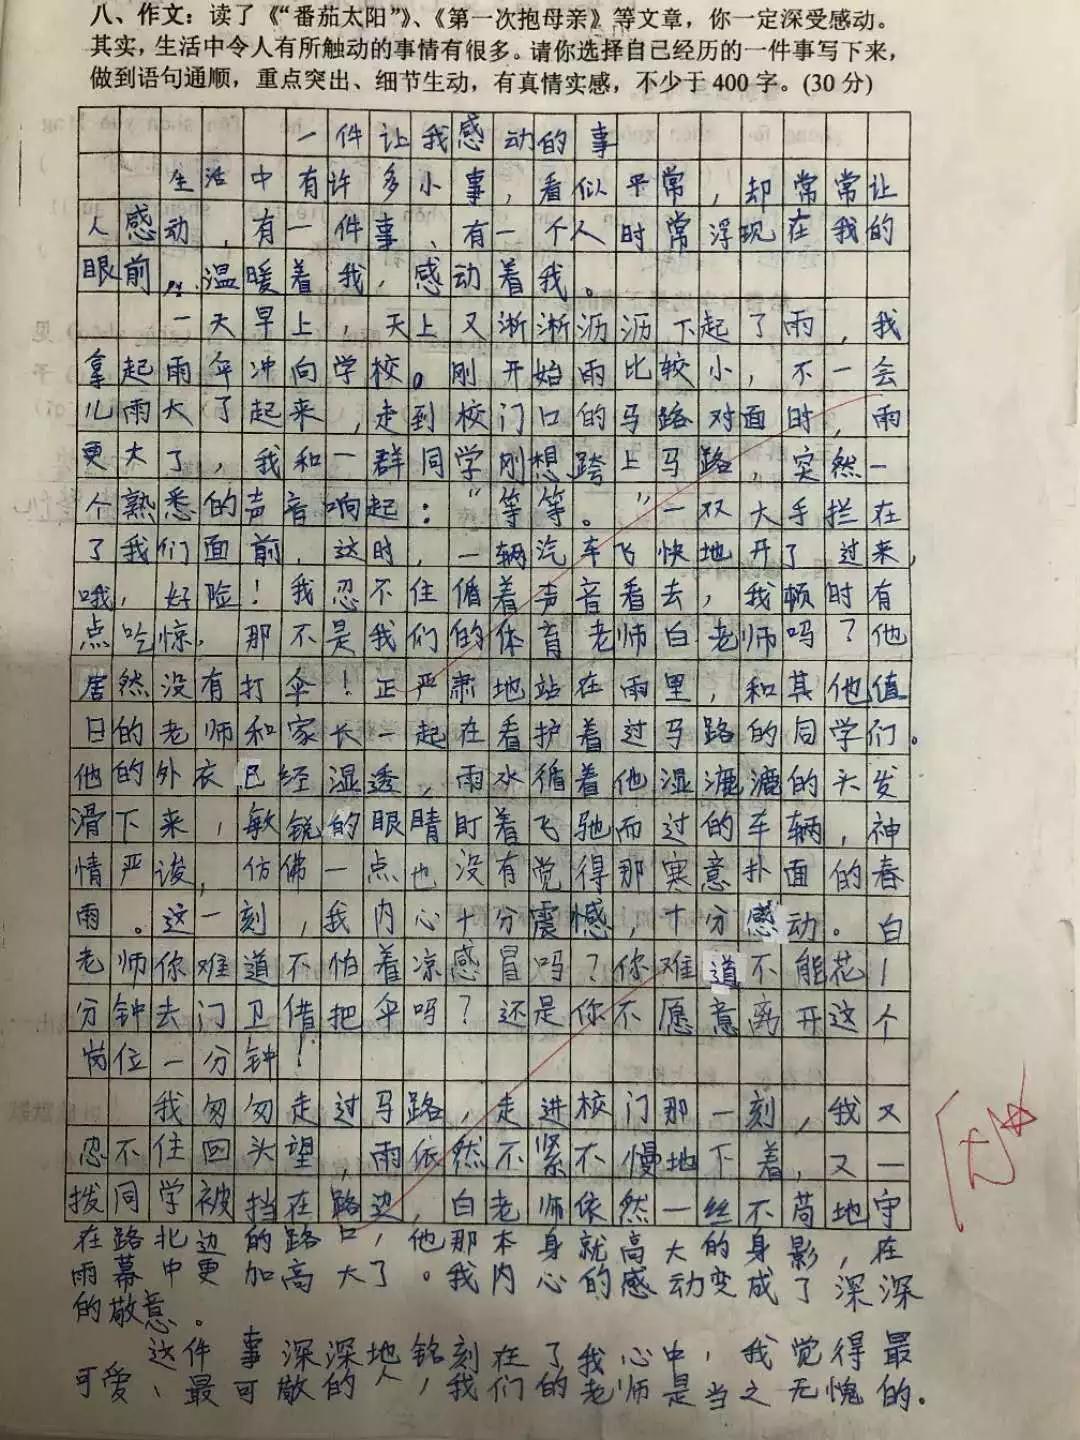 八、作文：读了《“番茄太阳”》、《第一次抱母亲》等文章，你一定深受感动。
其实，生活中令人有所触动的事情有很多。请你选择自己经历的一件事写下来，
做到语句通顺，重点突出、细节生动，有真情实感，不少于400字。(30分)
一件让我感动的事
生活中有许多小事，看似平常，却常常让
人感动，有一件事、有一个人时常浮现在我的
眼前，温暖着我，感动着我。
一天早上，天上又淅淅沥沥下起了雨，我
拿起雨伞冲向学校。刚开始雨比较小，不一会
儿雨大了起来，走到校门口的马路对面时，雨
更大了，我和一群同学刚想跨上马路，突然一
个熟悉的声音响起：“等等。”一双大手拦在
了我们面前，这时，一辆汽车飞快地开了过来，
哦，好险！我忍不住循着声音看去，我顿时有
点吃惊，那不是我们的体育老师白老师吗？他
居然没有打伞！正严肃地站在雨里，和其他值
日的老师和家长一起在看护着过马路的同学们。
他的外衣已经湿透，雨水循着他湿漉漉的头发
滑下来，敏锐的眼睛盯着飞驰而过的车辆，神
情严峻，仿佛一点也没有觉得那寒意扑面的春
雨。这一刻，我内心十分震憾，十分感动。白
老师你难道不怕着凉感冒吗？你难道不能花1
分钟去门卫借把伞吗？还是你不愿意离开这个
岗位一分钟！
我匆匆走过马路，走进校门那一刻，我又
忍不住回头望，雨依然不紧不慢地下着，又一
拨同学被挡在路边，白老师依然一丝不苟地守
在路北边的路口，他那本身就高大的身影，在
雨幕中更加高大了。我内心的感动变成了深深
的敬意。
这件事深深地铭刻在了我心中，我觉得最
可爱、最可敬的人，我们的老师是当之无愧的.